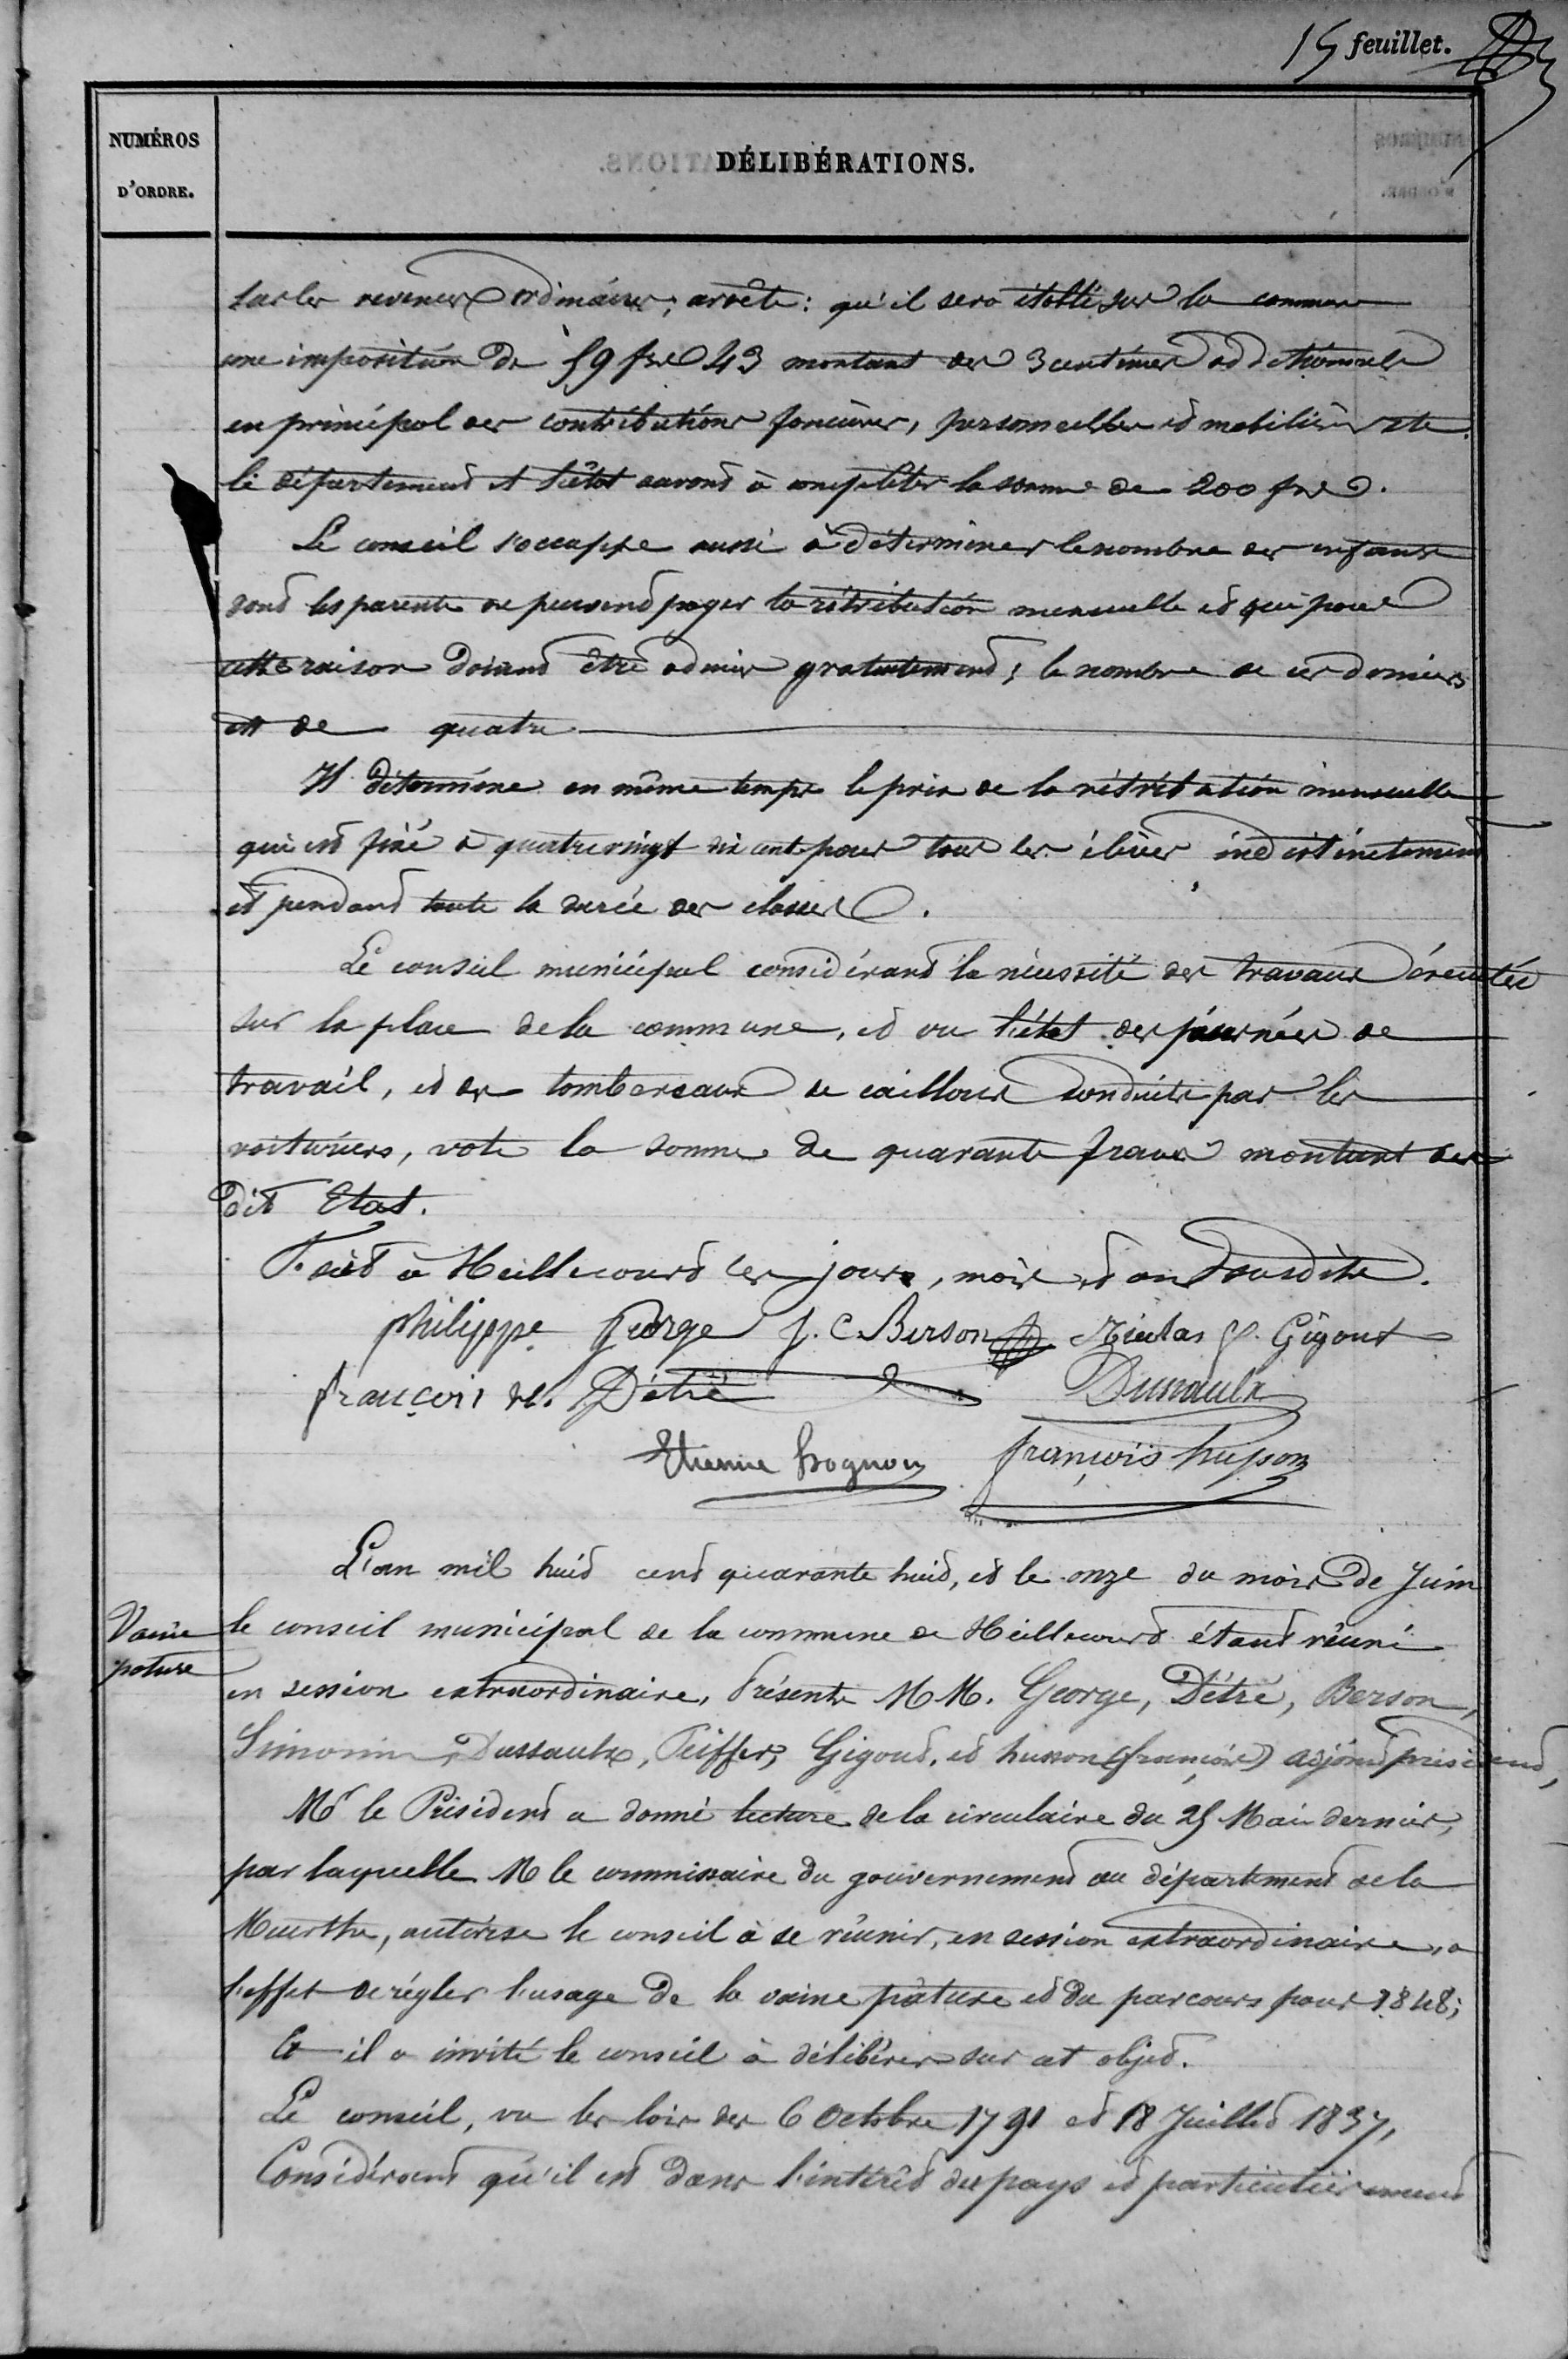 15 feuillet.
NUMÉROS
D'ORDRE.
DÉLIBÉRATIONS.
sur les revenus ordinaires, arrête: qu'il sera établi sur la commune
une imposition de 59 frs 43 montant des 3 centimes additionnels
en principal des contributions foncières, personnelles et mobilières etc.
le département et l'état auront à compléter la somme de 200 frs.
Le conseil s'occuppe aussi à déterminer le nombre des enfants
dont les parents ne peuvent payer la rétribution mensuelle et qui pour
cette raison doivent être admis gratuitement; le nombre de ces derniers
est de quatre
Il détermine en même temps le prix de la rétribution mensuelle
qui est fixé à quatrevingt dix cent. pour tous les élèves indistinctement
et pendant toute la durée des classes.
Le conseil municipal considérant la nécessité des travaux éxecutés
sur la place de la commune, et vu l'état des journées de
travail, et des tombereaux de cailloux conduits par les
voituriers, vote la somme de quarante francs montant des
dit Etat.
Fait à Heillecourt les jours, mois et an susdits.
philippe George J. C. Berson Nicolas Gigout
françois Détré Dussaulx
Etienne frognon françois husson
L'an mil huit cent quarante huit, et le onze du mois de Juin
Vaine
pature
le conseil municipal de la commune de Heillecourt étant réuni
en session extraordinaire, Présents MM. George, Détré, Berson,
Simonin, Dussaulx, Peiffer, Gigout, et husson (françois) adjoint président,
Mr le Président a donné lecture de la circulaire du 25 Mai dernier,
par laquelle M le commissaire du gouvernement au département de la
Meurthe, autorise le conseil à se réunir, en session extraordinaire, a
l'effet de régler l'usage de la vaine pâture et du parcours pour 1848;
Et il a invité le conseil à délibérer sur cet objet.
Le conseil, vu les lois des 6 Octobre 1791 et 18 Juillet 1837,
Considérant qu'il est dans l'intérêt du pays et particulièrement